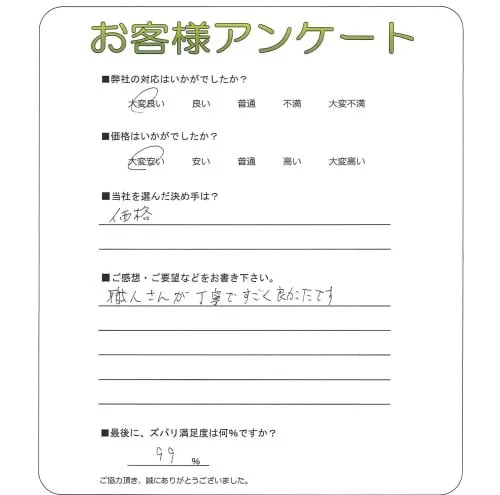 お客様アンケート
■弊社の対応はいかがでしたか？
大変良い 良い 普通 不満 大変不満
■価格はいかがでしたか？
大変安い 安い 普通 高い 大変高い
■当社を選んだ決め手は？
価格
■ご感想・ご要望などをお書き下さい。
職人さんが丁寧ですごく良かたです
■最後に、ズバリ満足度は何％ですか？
99 %
ご協力頂き、誠にありがとうございました。